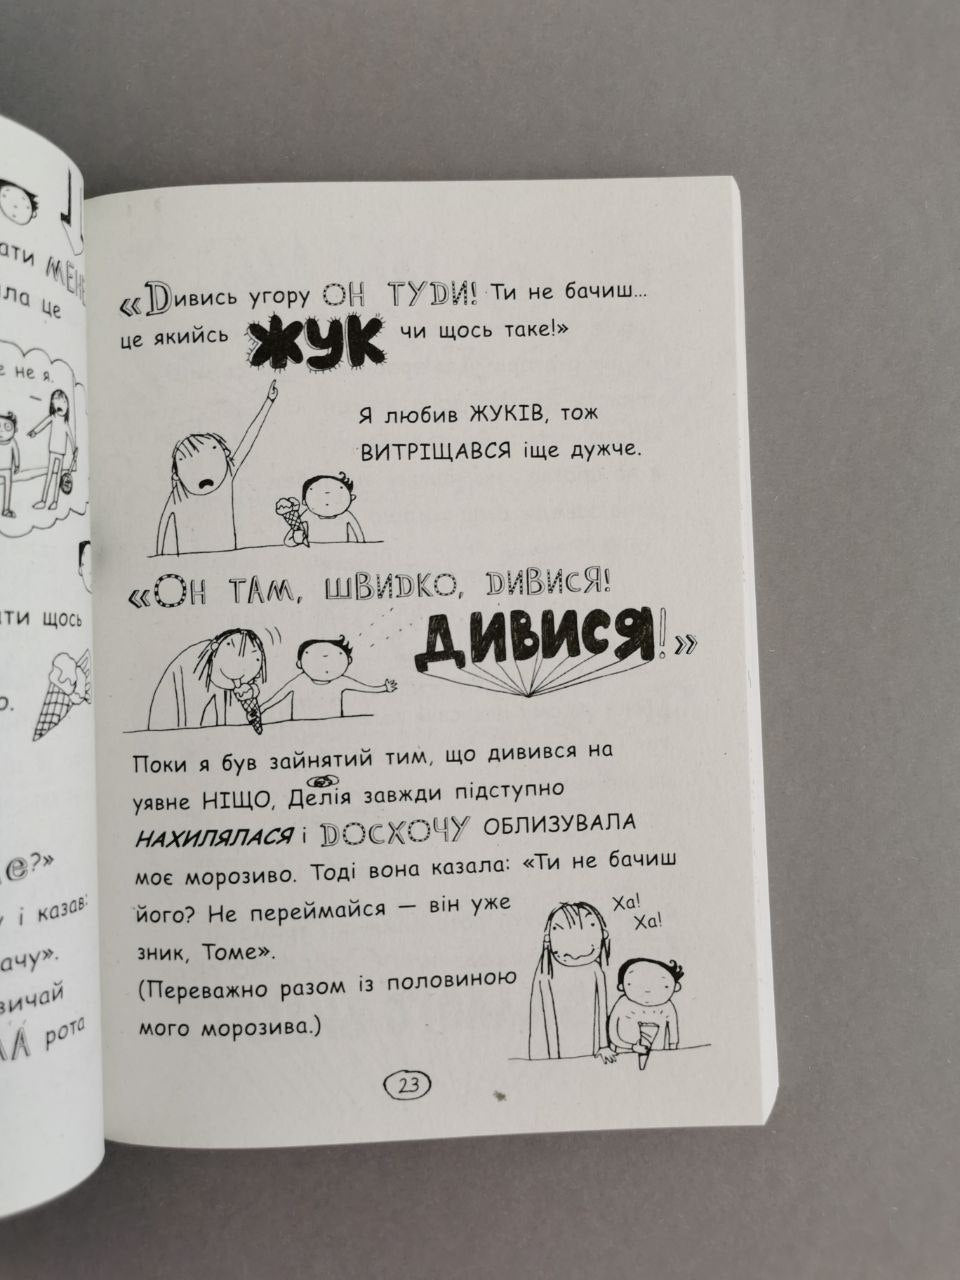 ати МЕНЕ
ла це
е не я.
ти щось
о.
е?»
у і казав:
ачу».
вичай
АА рота
«Дивись угору ОН ТУДИ! Ти не бачиш...
це якийсь ЖУК чи щось таке!»
Я любив ЖУКІВ, тож
ВИТРІЩАВСЯ іще дужче.
«ОН ТАМ, ШВИДКО, ДИВИСЯ!
ДИВИСЯ!»
Поки я був зайнятий тим, що дивився на
уявне НІЩО, Делія завжди підступно
НАХИЛЯЛАСЯ і ДОСХОЧУ ОБЛИЗУВАЛА
моє морозиво. Тоді вона казала: «Ти не бачиш
його? Не переймайся — він уже
зник, Томе».
(Переважно разом із половиною
мого морозива.)
Ха!
Ха!
23